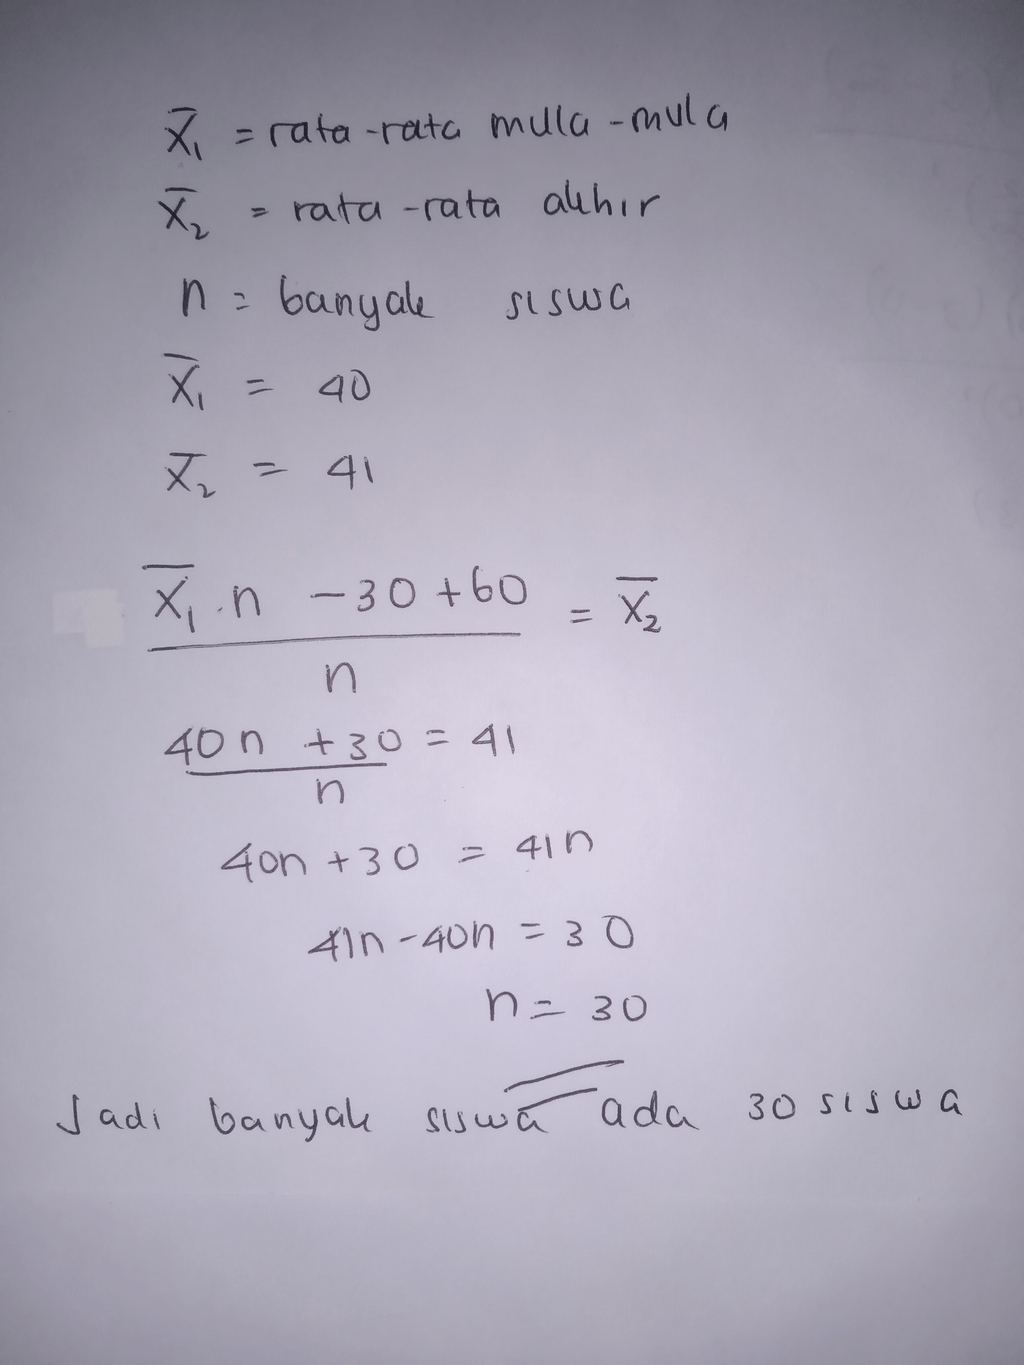 X̄₁ = rata-rata mula-mula
X̄₂ = rata-rata akhir
n = banyak siswa
X̄₁ = 40
X̄₂ = 41
X̄₁.n - 30 + 60 = X̄₂
n
40n + 30 = 41
n
40n + 30 = 41n
41n - 40n = 30
n = 30
Jadi banyak siswa ada 30 siswa